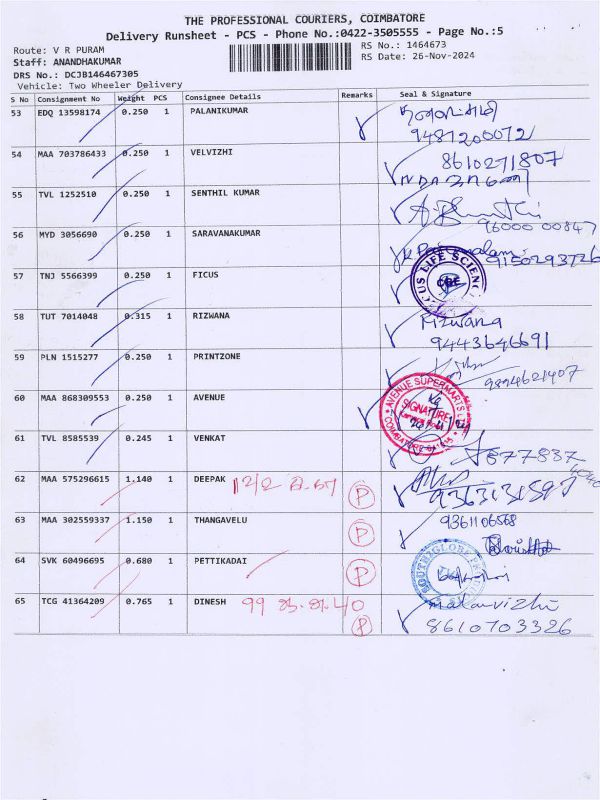 THE PROFESSIONAL COURIERS, COIMBATORE
Delivery Runsheet - PCS - Phone No.:0422-3505555 - Page No.:5
Route: V R PURAM
RS No.: 1464673
Staff: ANANDHAKUMAR
RS Date: 26-Nov-2024
DRS No.: DCJB146467305
Vehicle: Two Wheeler Delivery
S No Consignment No Weight PCS Consignee Details Remarks Seal & Signature
53 EDQ 13598174 0.250 1 PALANIKUMAR
9487200072
54 MAA 703786433 0.250 1 VELVIZHI 8610271807
55 TVL 1252510 0.250 1 SENTHIL KUMAR
9600000847
56 MYD 3056690 0.250 1 SARAVANAKUMAR
9150293726
57 TNJ 5566399 0.250 1 FICUS
FICUS LIFE SCIENCE
CBE
58 TUT 7014048 0.315 1 RIZWANA Rizwana
9443646691
59 PLN 1515277 0.250 1 PRINTZONE
9894621407
60 MAA 868309553 0.250 1 AVENUE
AVENUE SUPERMARTS LTD
SIGNATURE
61 TVL 8585539 0.245 1 VENKAT
62 MAA 575296615 1.140 1 DEEPAK P
63 MAA 302559337 1.150 1 THANGAVELU P 9361106568
64 SVK 60496695 0.680 1 PETTIKADAI P
65 TCG 41364209 0.765 1 DINESH P malarvizhi
8610703326